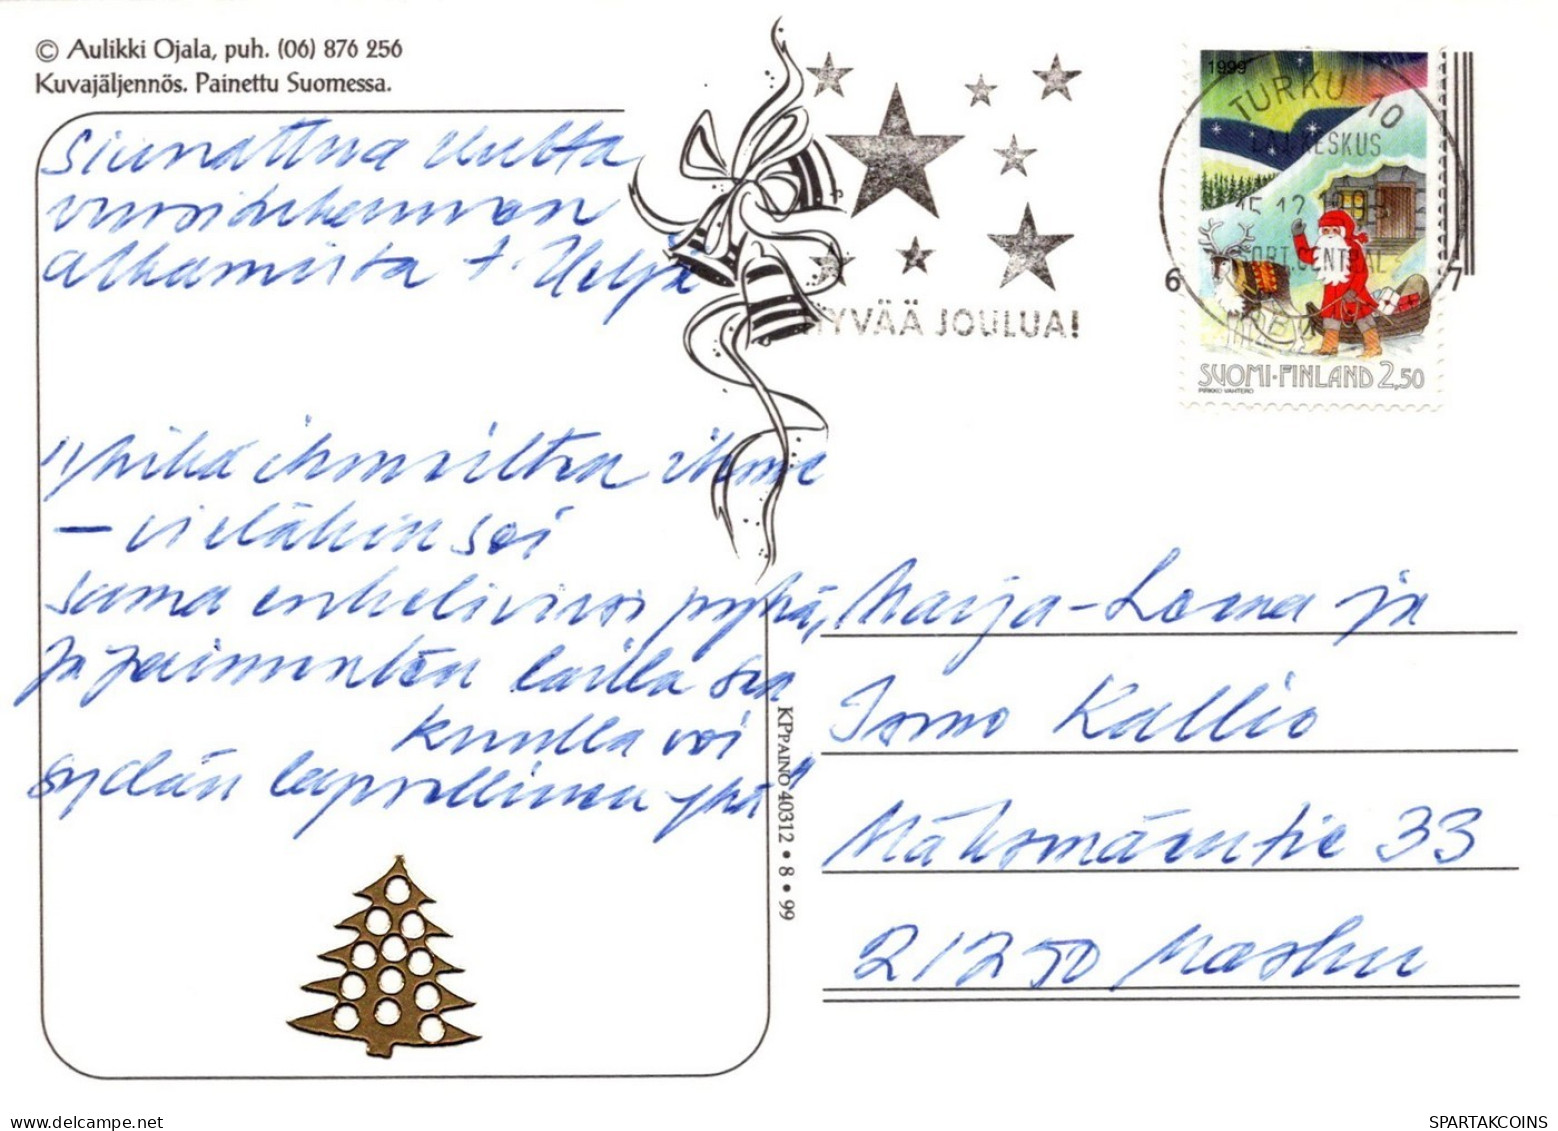 © Aulikki Ojala, puh. (06) 876 256
Kuvajäljennös. Painettu Suomessa.
Siunattua Uutta
vuosituhannen
alkamista t. Helja
HYVÄÄ JOULUA!
1999
TURKU 10
LAJ.KESKUS
15.12
SORT.CENTRAL
6 7
ÅBO
SUOMI·FINLAND 2,50
PIRKKO VAHTERO
"Mikä ihmeiltten ihme
– vieläkin soi
sama enkelivirsi pyhä,
ja paimenten lailla sen
kuulla voi
sydän lapsellinen yhä"
KPPAINO 40312 • 8 • 99
Marja-Leena ja
Jorno Kallio
Mäksmäentie 33
21250 Masku
SPARTAKCOINS